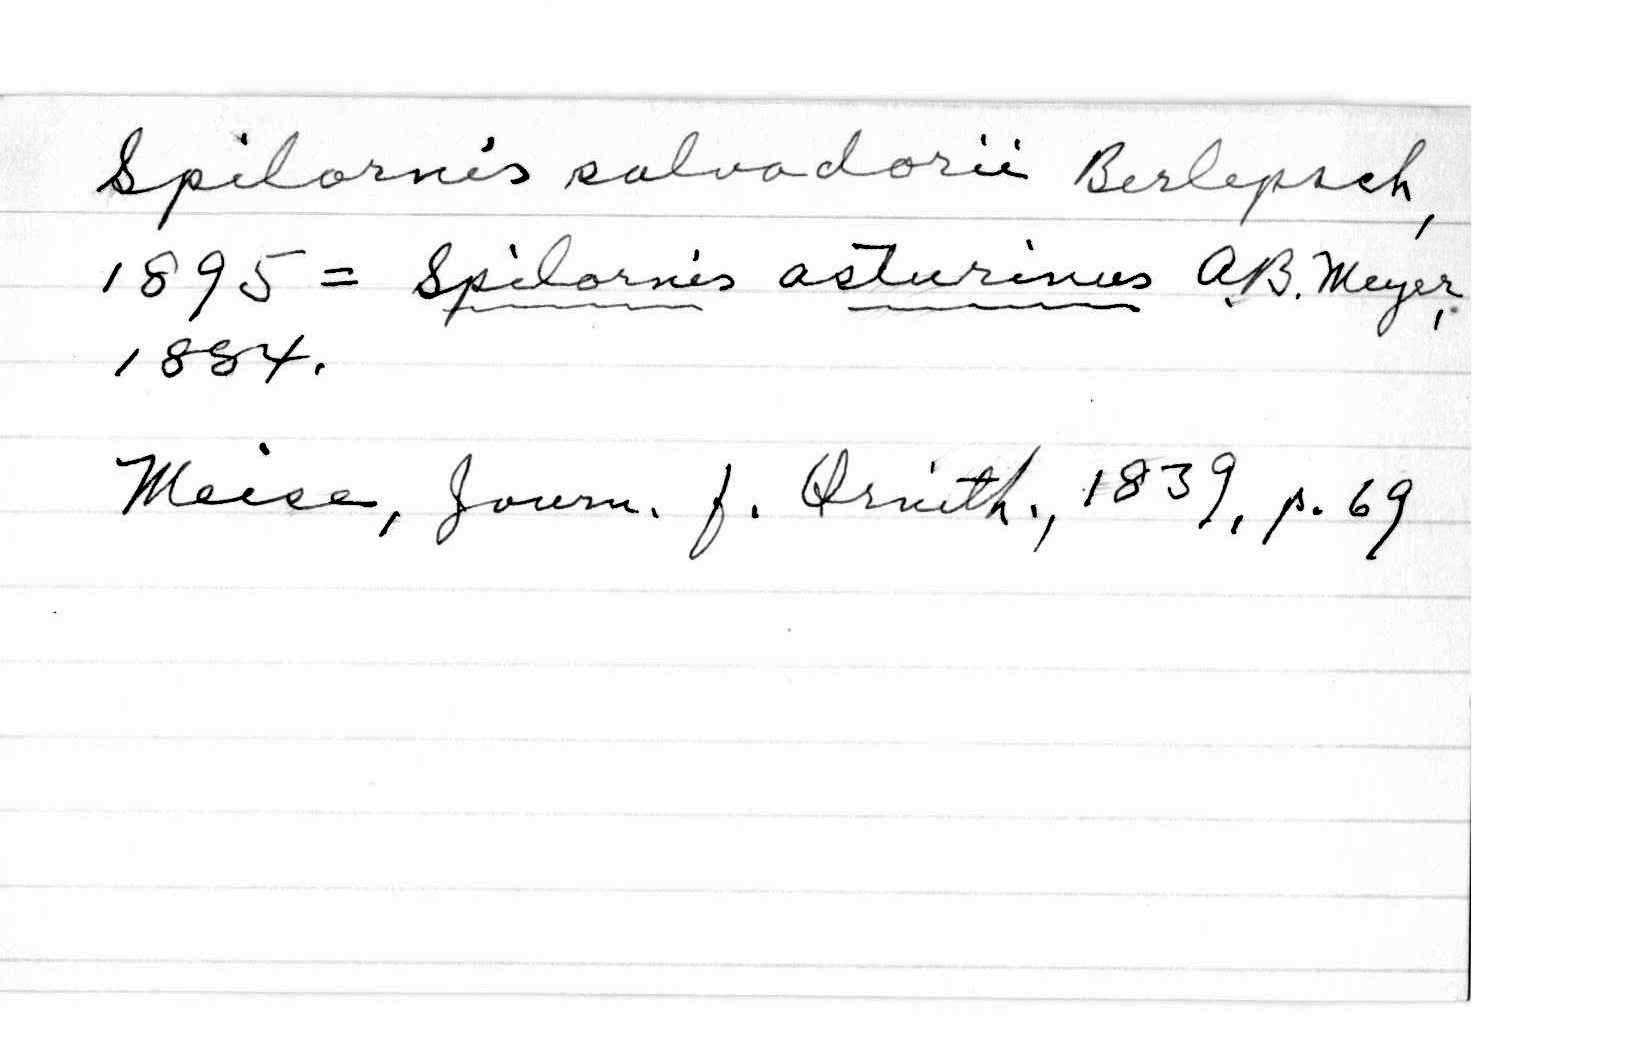 Spilornis salvadorii Berlepsch,
1895 = Spilornis asturinus A.B. Meyer,
1884.
Meise, Journ. f. Ornith., 1839, p. 69